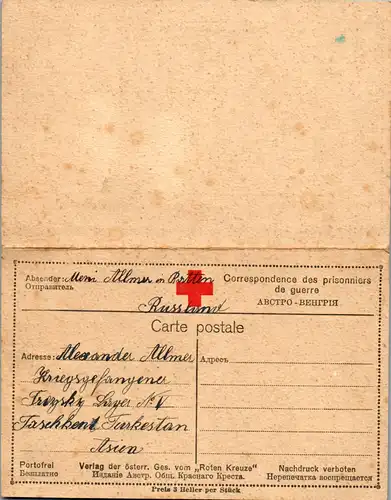 Absender: Meni Allmer in Ratten Correspondence des prisonniers
Отправитель de guerre
Russland АВСТРО-ВЕНГРІЯ
Carte postale
Adresse: Alexander Allmer Адресъ
Kriegsgefangener
Troizky Lager No V
Taschkent Turkestan
Asien
Portofrei Verlag der österr. Ges. vom „Roten Kreuze" Nachdruck verboten
Безплатно Изданіе Австр. Общ. Краснаго Креста. Перепечатка воспрещается
Preis 3 Heller per Stück